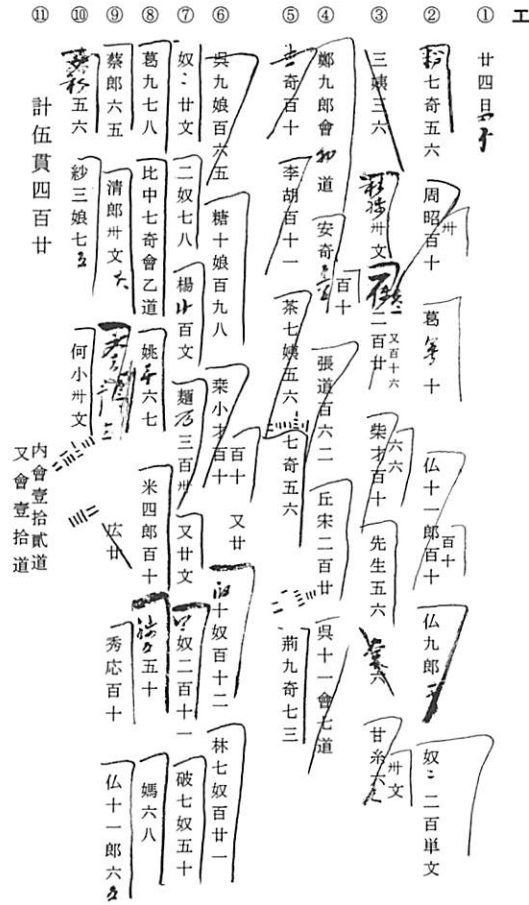 エ
① 廿四日
② 七奇五六 周昭百十 卅 葛 十 仏十一郎百十 百十 仏九郎 奴〻二百単文
③ 三姨三六 卅文 二百廿 又百十六 柴才百十 六六 先生五六 六 甘糸六 卅文
④ 鄭九郎會 道 安奇 百十 張道百六二 丘宋二百廿 呉十一會七道
⑤ 奇百十 李胡百十一 茶七姨五六 七奇五六 荊九奇七三
⑥ 呉九娘百六五 糖十娘百九八 桒小才百十 百十 又廿 十奴百十二 林七奴百廿一
⑦ 奴〻廿文 二奴七八 楊 百文 麺 三百卅 又廿文 奴二百十一 破七奴五十
⑧ 葛九七八 比中七奇會乙道 姚 六七 米四郎百十 五十 媽六八
⑨ 蔡郎六五 清郎卅文 広廿 秀応百十 仏十一郎六
⑩ 五六 紗三娘七 何小卅文
⑪ 計伍貫四百廿 内會壹拾貳道
又會壹拾道